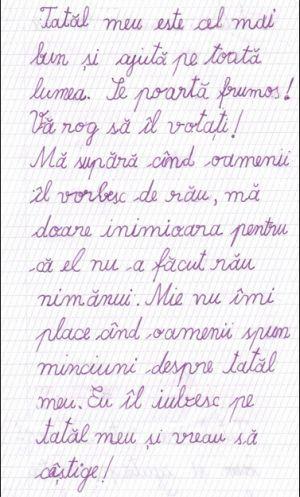 Tatăl meu este cel mai
bun și ajută pe toată
lumea. Se poartă frumos!
Vă rog să îl votați!
Mă supără cînd oamenii
îl vorbesc de rău, mă
doare inimioara pentru
că el nu a făcut rău
nimănui. Mie nu îmi
place cînd oamenii spun
minciuni despre tatăl
meu. Eu îl iubesc pe
tatăl meu și vreau să
cîștige!